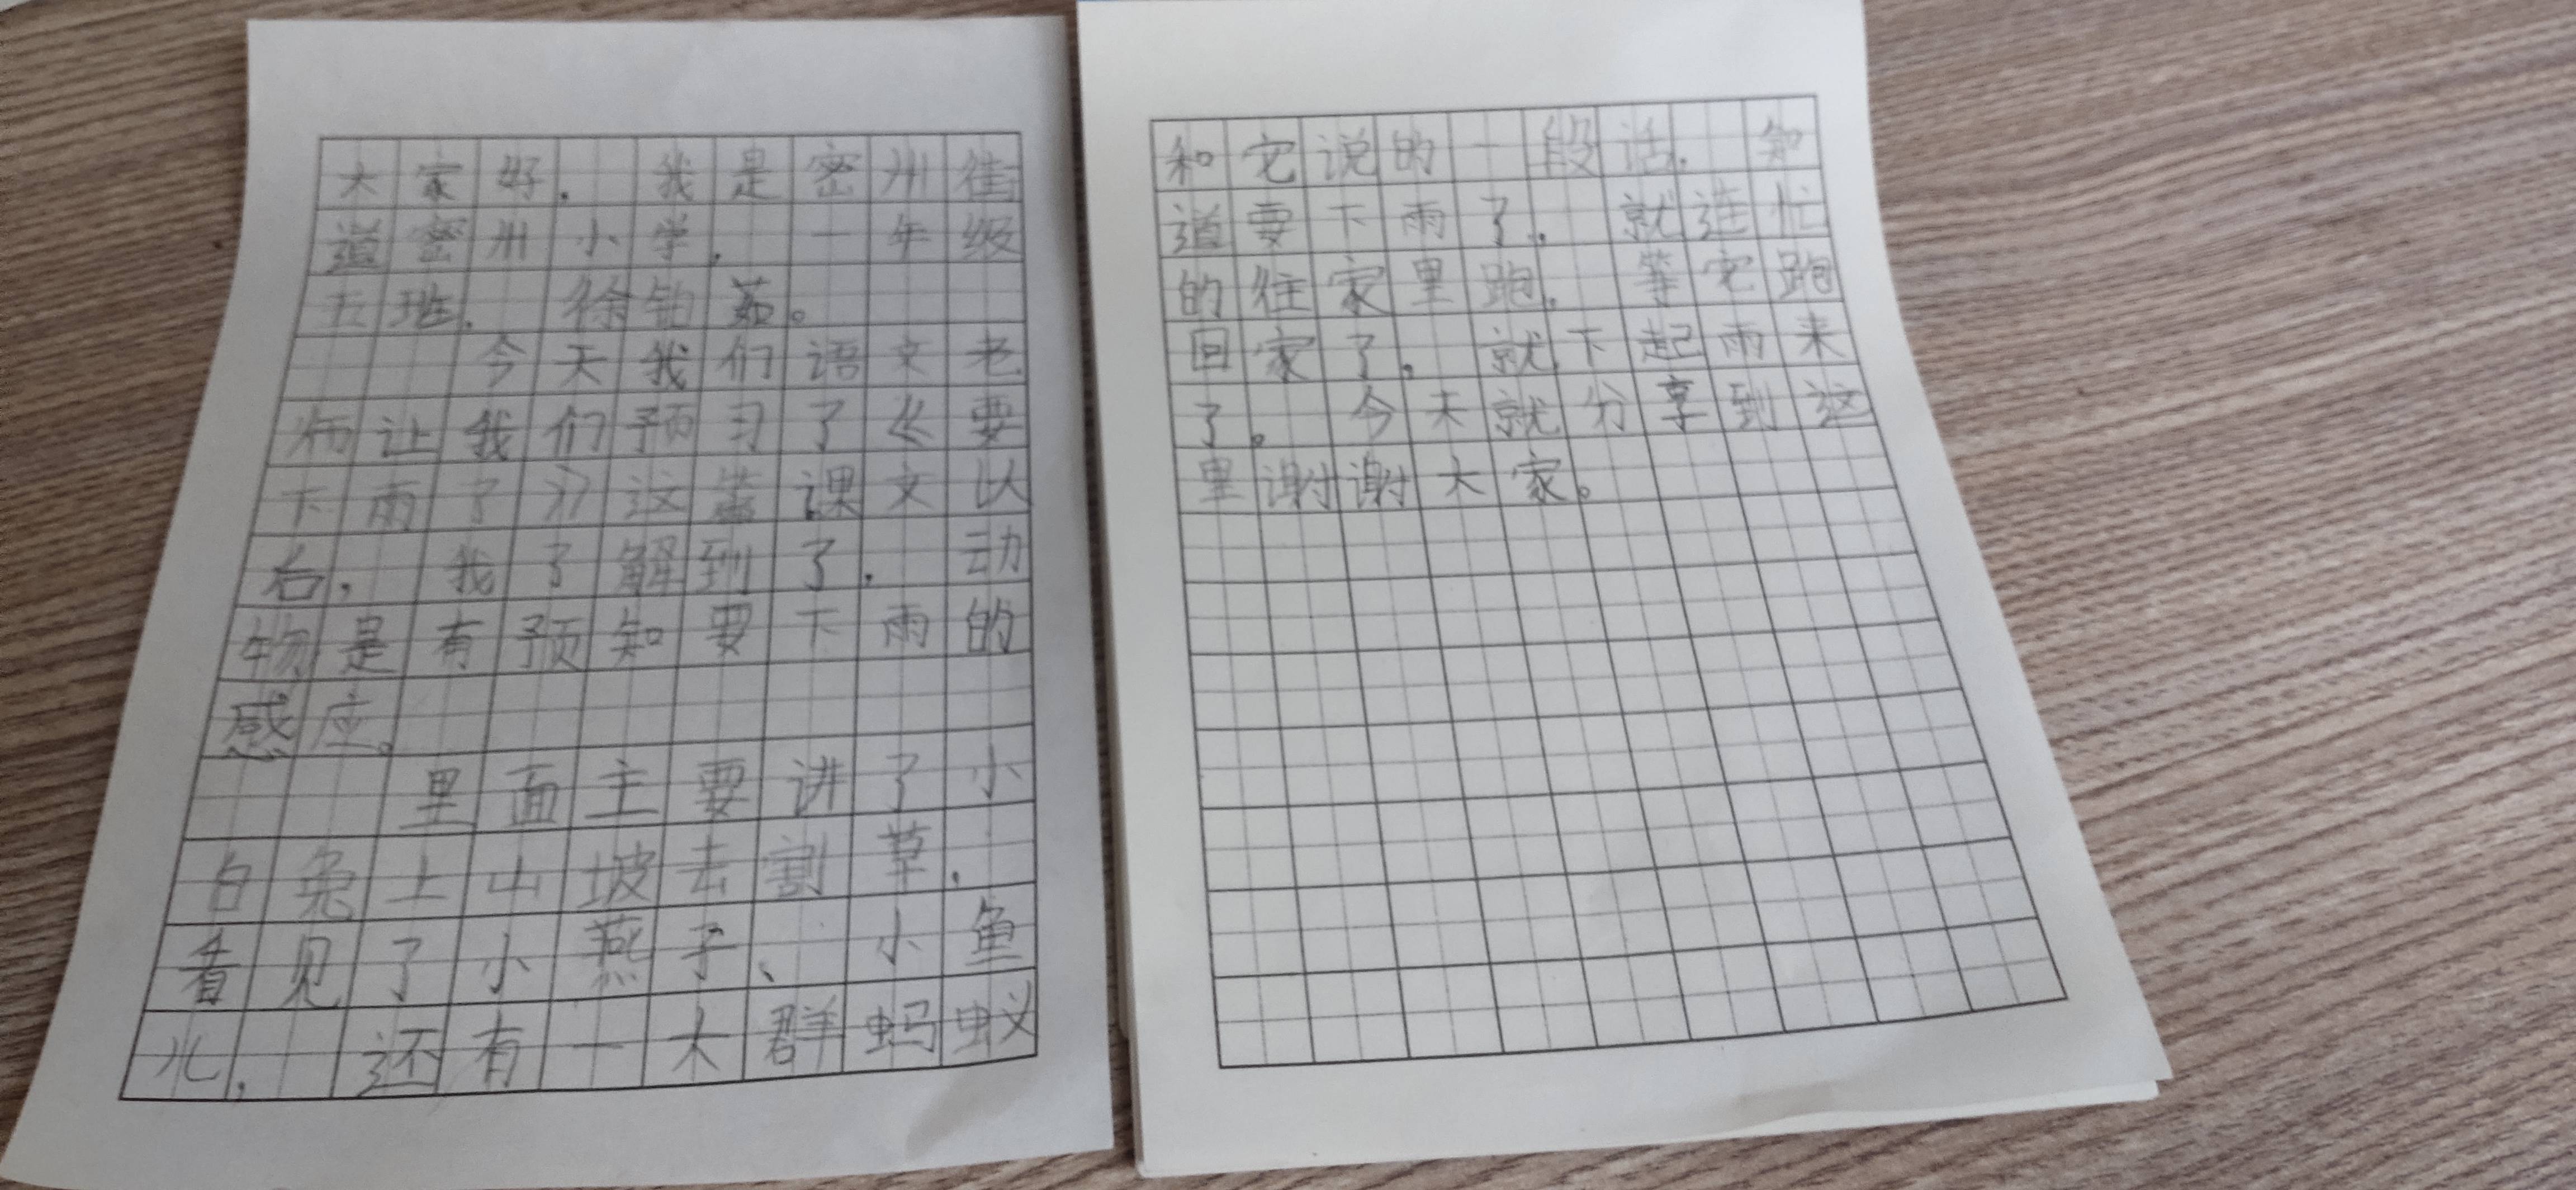 大家好.我是密州街
道密州小学.一年级
五班.徐铂茹。
今天我们语文老
师让我们预习了《要
下雨了》这篇课文以
后.我了解到了.动
物是有预知要下雨的
感应。
里面主要讲了小
白兔上山坡去割草.
看见了小燕子、小鱼
儿.还有一大群蚂蚁
和它说的一段话.知
道要下雨了.就连忙
的往家里跑.等它跑
回家了.就下起雨来
了。今天就分享到这
里谢谢大家。